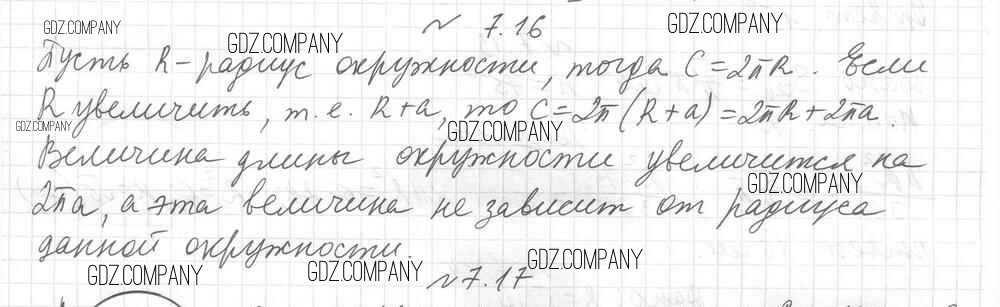 № 7.16
Пусть R – радиус окружности, тогда C = 2πR. Если
R увеличить, т.е. R+a, то C = 2π(R+a) = 2πR + 2πa.
Величина длины окружности увеличится на
2πa, а эта величина не зависит от радиуса
данной окружности.
№ 7.17
GDZ.COMPANY
GDZ.COMPANY
GDZ.COMPANY
GDZ.COMPANY
GDZ.COMPANY
GDZ.COMPANY
GDZ.COMPANY
GDZ.COMPANY
GDZ.COMPANY